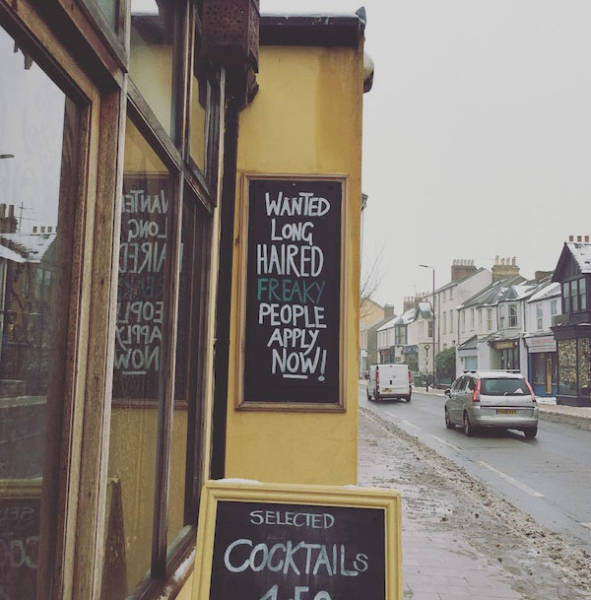 WANTED
LONG
HAIRED
FREAKY
PEOPLE
APPLY
NOW!
SELECTED
COCKTAILS